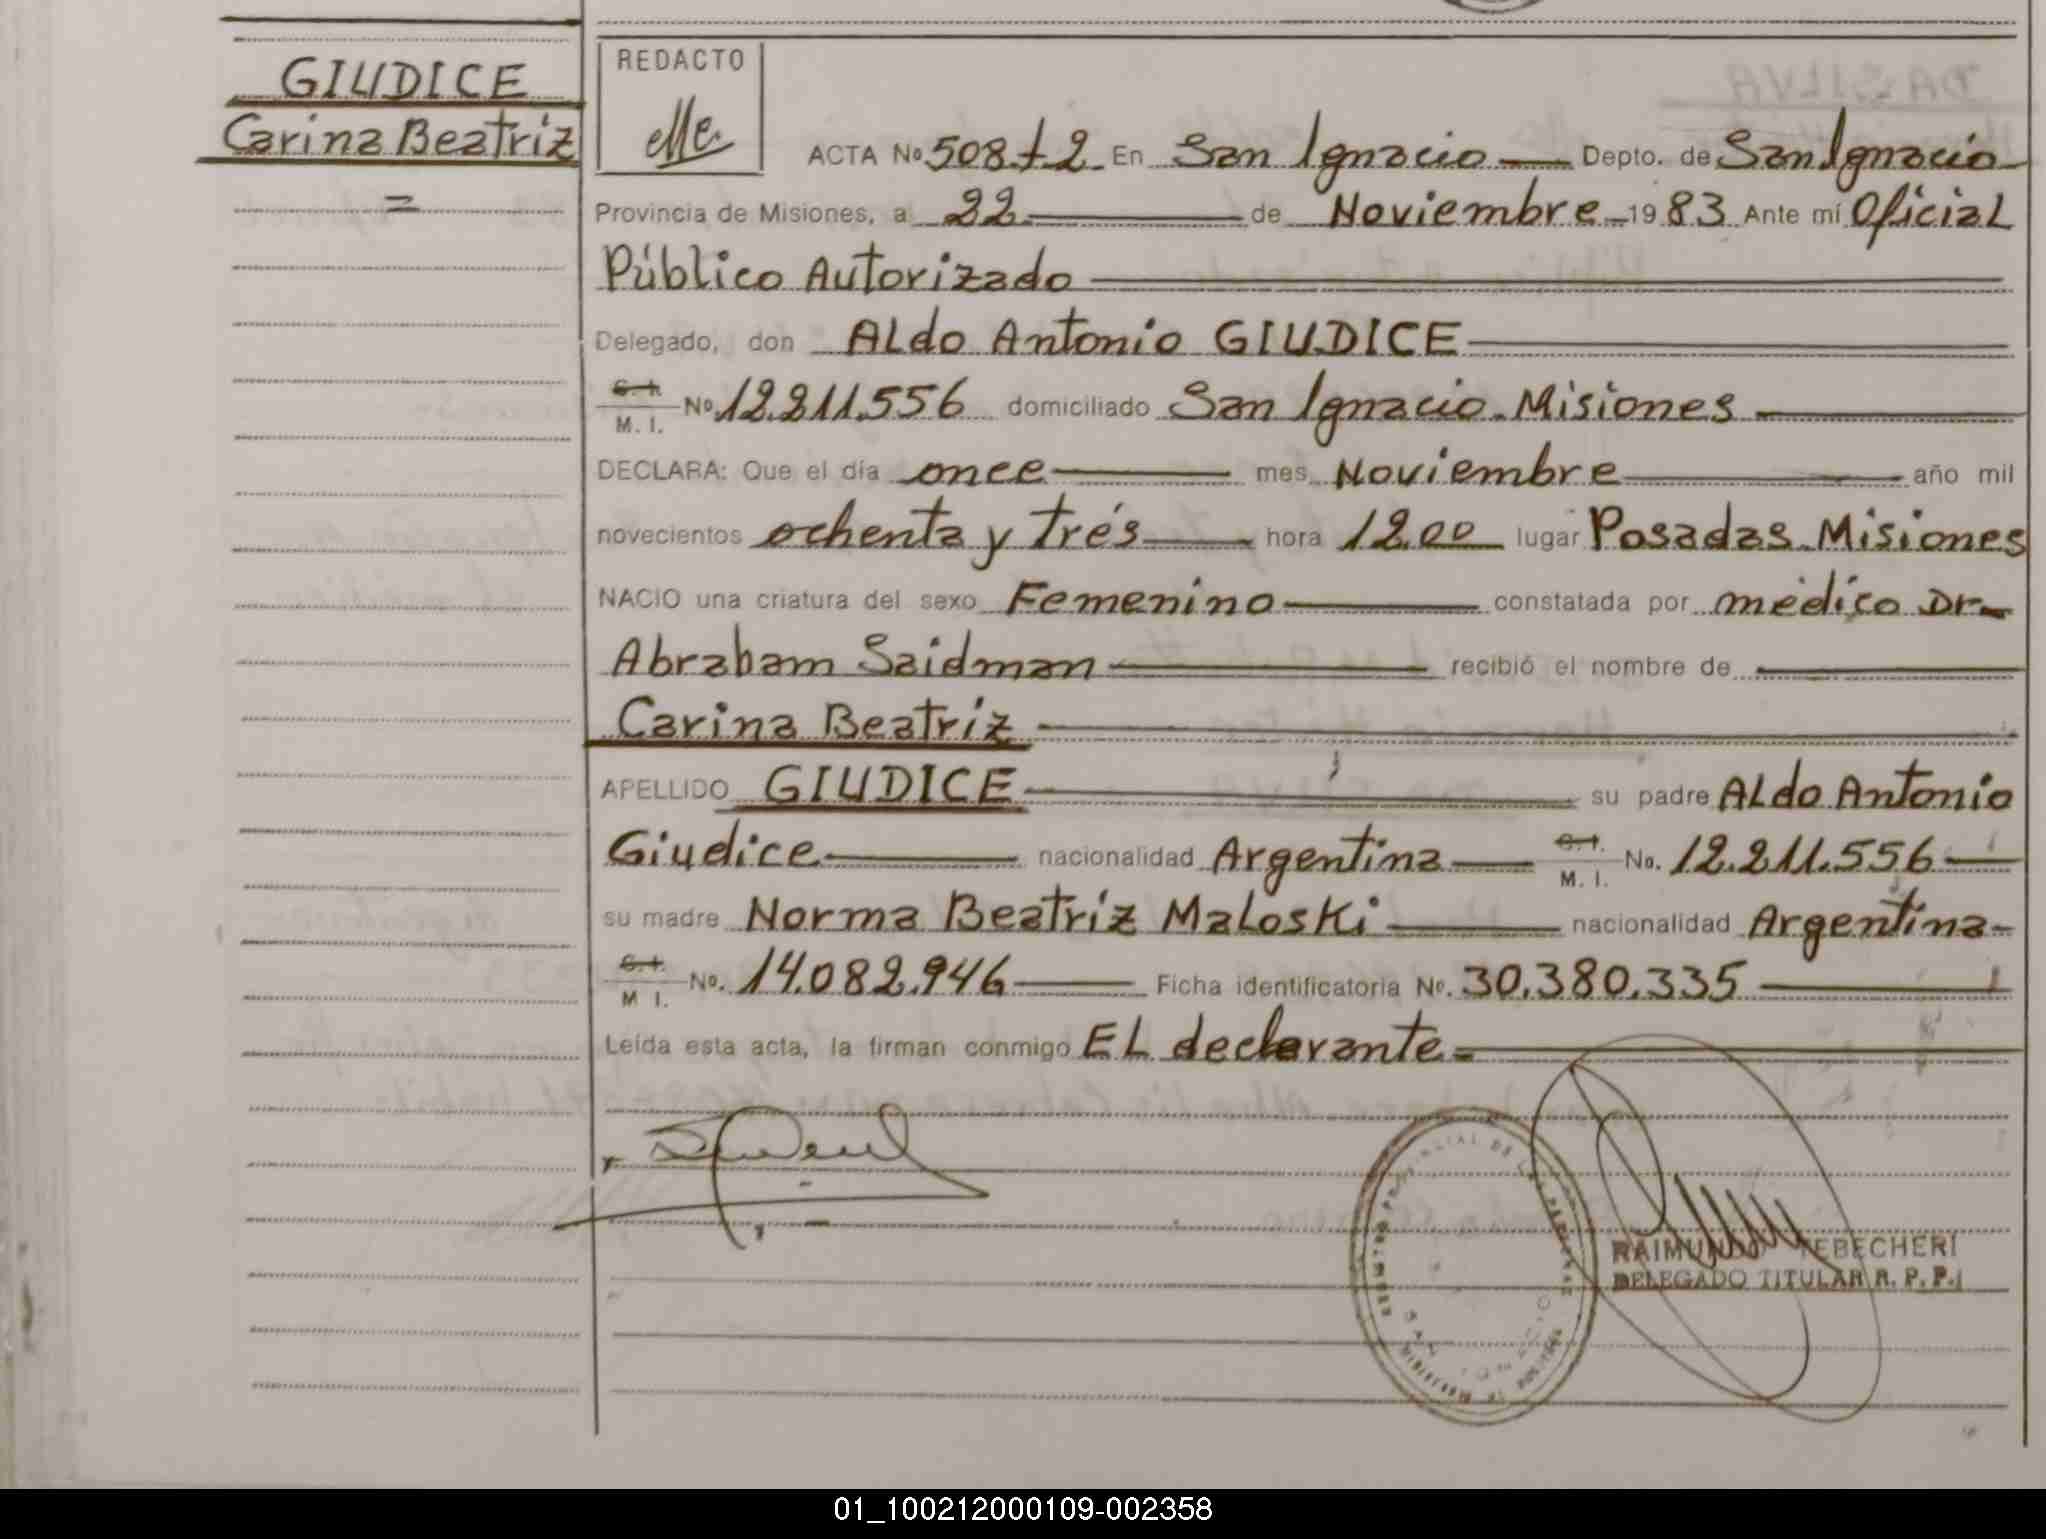 GIUDICE
Carina Beatriz
=
REDACTO
ACTA No 508 t 2 En San Ignacio Depto. de San Ignacio
Provincia de Misiones, a 22 de Noviembre 1983 Ante mí Oficial
Público Autorizado
Delegado, don Aldo Antonio GIUDICE
C. I.
M. I. No. 12.211.556 domiciliado San Ignacio. Misiones
DECLARA: Que el día once mes Noviembre año mil
novecientos ochenta y trés hora 12.00 lugar Posadas. Misiones
NACIO una criatura del sexo Femenino constatada por médico Dr
Abraham Saidman recibió el nombre de
Carina Beatriz
APELLIDO GIUDICE su padre Aldo Antonio
Giudice nacionalidad Argentina C. I.
M. I. No. 12.211.556
su madre Norma Beatriz Maloski nacionalidad Argentina
C. I.
M I. No. 14.082.946 Ficha identificatoria No. 30.380.335
Leída esta acta, la firman conmigo El declarante
RAIMUNDO TEBECHERI
DELEGADO TITULAR R. P. P.
01_100212000109-002358